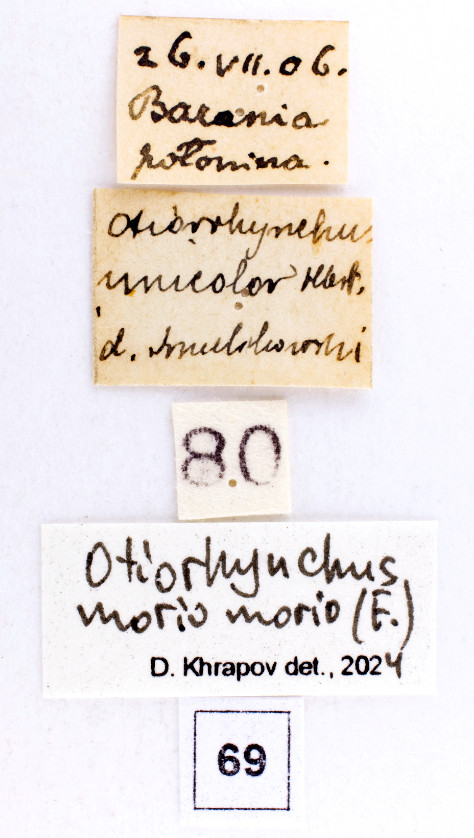 26.VII.06.
Barania
połonina.
Otiorrhynchus
unicolor Hbst.
d. Smulikowski
80
Otiorhynchus
morio morio (F.)
D. Khrapov det., 2024
69